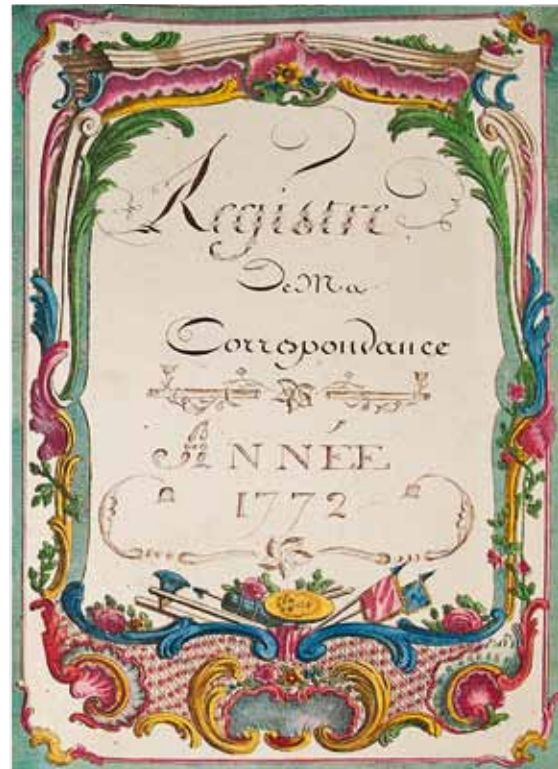 Registre
De Ma
Correspondance
ANNÉE
1772